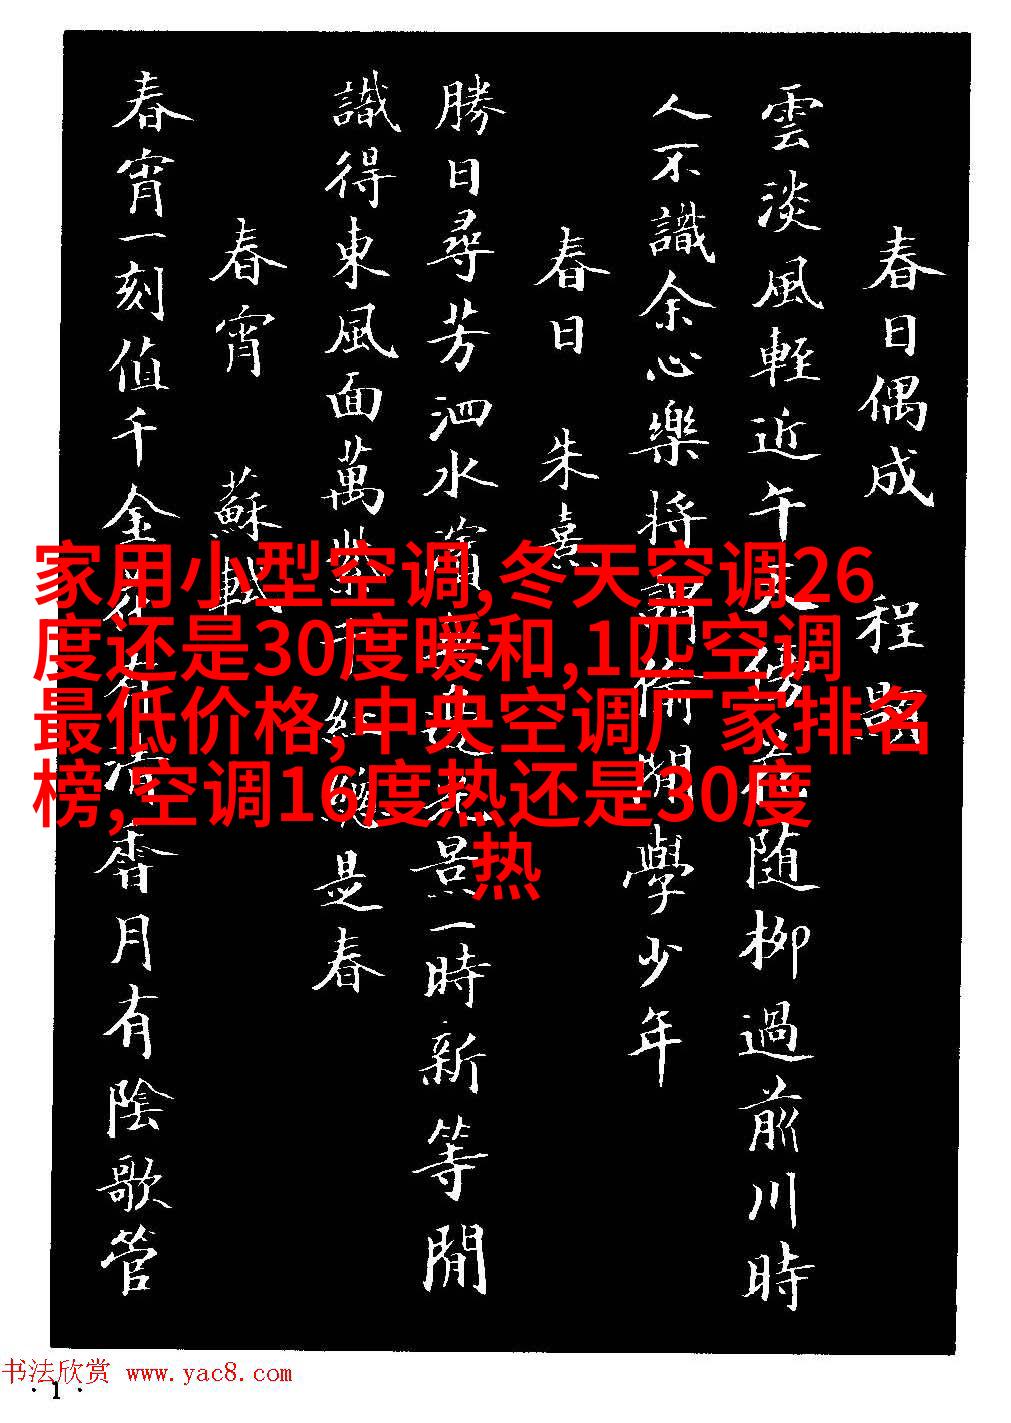 春日偶成 程顥
雲淡風輕近午天傍花随柳過前川時
人不識余心樂將謂偷閒學少年
春日 朱熹
勝日尋芳泗水濱無邊光景一時新等閒
識得東風面萬紫千紅總是春
春宵 蘇軾
春宵一刻值千金花有清香月有陰歌管
家用小型空调,冬天空调26
度还是30度暖和,1匹空调
最低价格,中央空调厂家排名
榜,空调16度热还是30度
热
书法欣赏 www.yac8.com
·1·